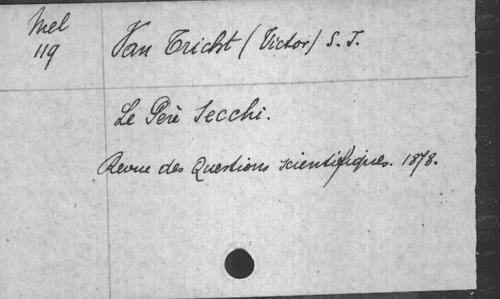 Mel
119
Van Tricht (Victor) S. J.
Le Père Secchi.
Revue des Questions scientifiques. 1878.